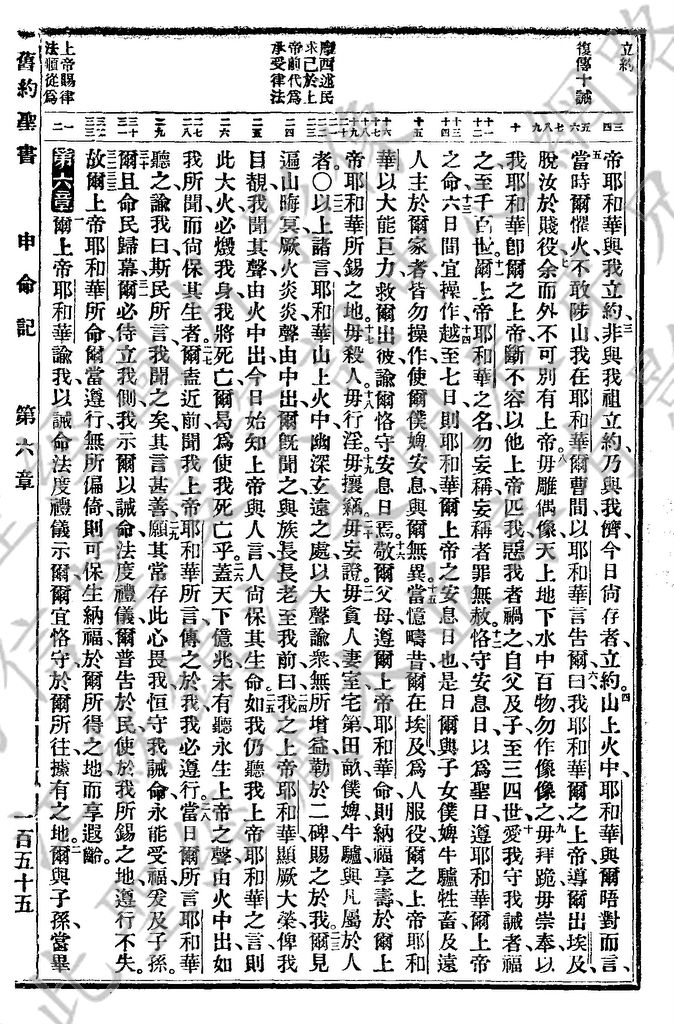 立約
復傳十誡
摩西述民
求己於上
帝前代爲
承受律法
上帝賜律
法順從爲
三四
五六
七八九
十
十一
十二
十三
十四
十五
十六
十七十八
十九二十
二一
二二
二三
二四
二五
二六
二七
二八
二九
三十
三一
三二
三三
一二
帝耶和華與我立約非與我祖立約乃與我儕今日尚存者立約山上火中耶和華與爾晤對而言
當時爾懼火不敢陟山我在耶和華爾曹間以耶和華言告爾曰我耶和華爾之上帝導爾出埃及
脫汝於賤役余而外不可別有上帝毋雕偶像天上地下水中百物勿作像像之毋拜跪毋崇奉以
我耶和華卽爾之上帝斷不容以他上帝匹我惡我者禍之自父及子至三四世愛我守我誡者福
之至千百世爾上帝耶和華之名勿妄稱妄稱者罪無赦恪守安息日以爲聖日遵耶和華爾上帝
之命六日間宜操作越至七日則耶和華爾上帝之安息日也是日爾與子女僕婢牛驢牲畜及遠
人主於爾家者皆勿操作使爾僕婢安息與爾無異當憶疇昔爾在埃及爲人服役爾之上帝耶和
華以大能巨力救爾出彼諭爾恪守安息日焉敬爾父母遵爾上帝耶和華命則納福享壽於爾上
帝耶和華所錫之地毋殺人毋行淫毋攘竊毋妄證毋貪人妻室宅第田畝僕婢牛驢與凡屬於人
者○以上諸言耶和華山上火中幽深玄遠之處以大聲諭衆無所增益勒於二碑賜之於我爾見
遍山晦冥厥火炎炎聲由中出爾旣聞之與族長長老至我前曰我之上帝耶和華顯厥大榮俾我
目覩我聞其聲由火中出今日始知上帝與人言人尚保其生命如我仍聽我上帝耶和華之言則
此大火必燬我身我將死亡爾曷爲使我死亡乎蓋天下億兆未有聽永生上帝之聲由火中出如
我所聞而尚保其生者爾盍近前聞我上帝耶和華所言傳之於我我必遵行當日爾所言耶和華
聽之諭我曰斯民所言我聞之矣其言甚善願其常存此心畏我恒守我誡命永能受福爰及子孫
爾且命民歸幕爾必侍立我側我示爾以誡命法度禮儀爾普告於民使於我所錫之地遵行不失
故爾上帝耶和華所命爾當遵行無所偏倚則可保生納福於爾所得之地而享遐齡
第六章爾上帝耶和華諭我以誡命法度禮儀示爾爾宜恪守於爾所往據有之地爾與子孫當畢
舊約聖書 申命記 第六章 一百五十五